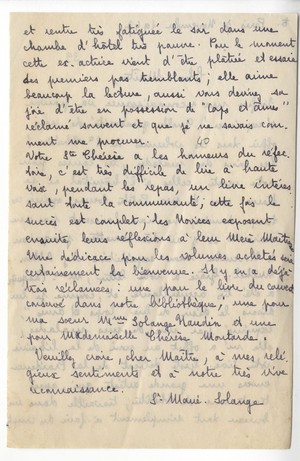 et rentre très fatiguée le soir dans une
chambre d'hôtel très pauvre. Pour le moment
cette ex-actrice vient d'être plâtrée et essaie
des premiers pas tremblants ; elle aime
beaucoup la lecture, aussi vous devinez sa
joie d'être en possession de "Corps et âmes"
réclamé souvent et que je ne savais com-
ment me procurer.
40
Votre Ste Thérèse a les honneurs du réfec-
toire, c'est très difficile de lire à haute
voix, pendant les repas, un livre intéres-
sant toute la communauté ; cette fois le
succès est complet ; les Novices exposent
ensuite leurs réflexions à leur Mère Maîtresse
Une dédicace pour les volumes achetés sera
certainement la bienvenue. Il y en a déjà
trois réclamées : une pour le livre du couvent
conservé dans notre bibliothèque ; une pour
ma sœur Mme Solange Naudin et une
pour Mademoiselle Thérèse Moutarde.
Veuillez croire, cher Maître, à mes reli-
gieux sentiments et à notre très vive
reconnaissance.
Sr Marie-Solange